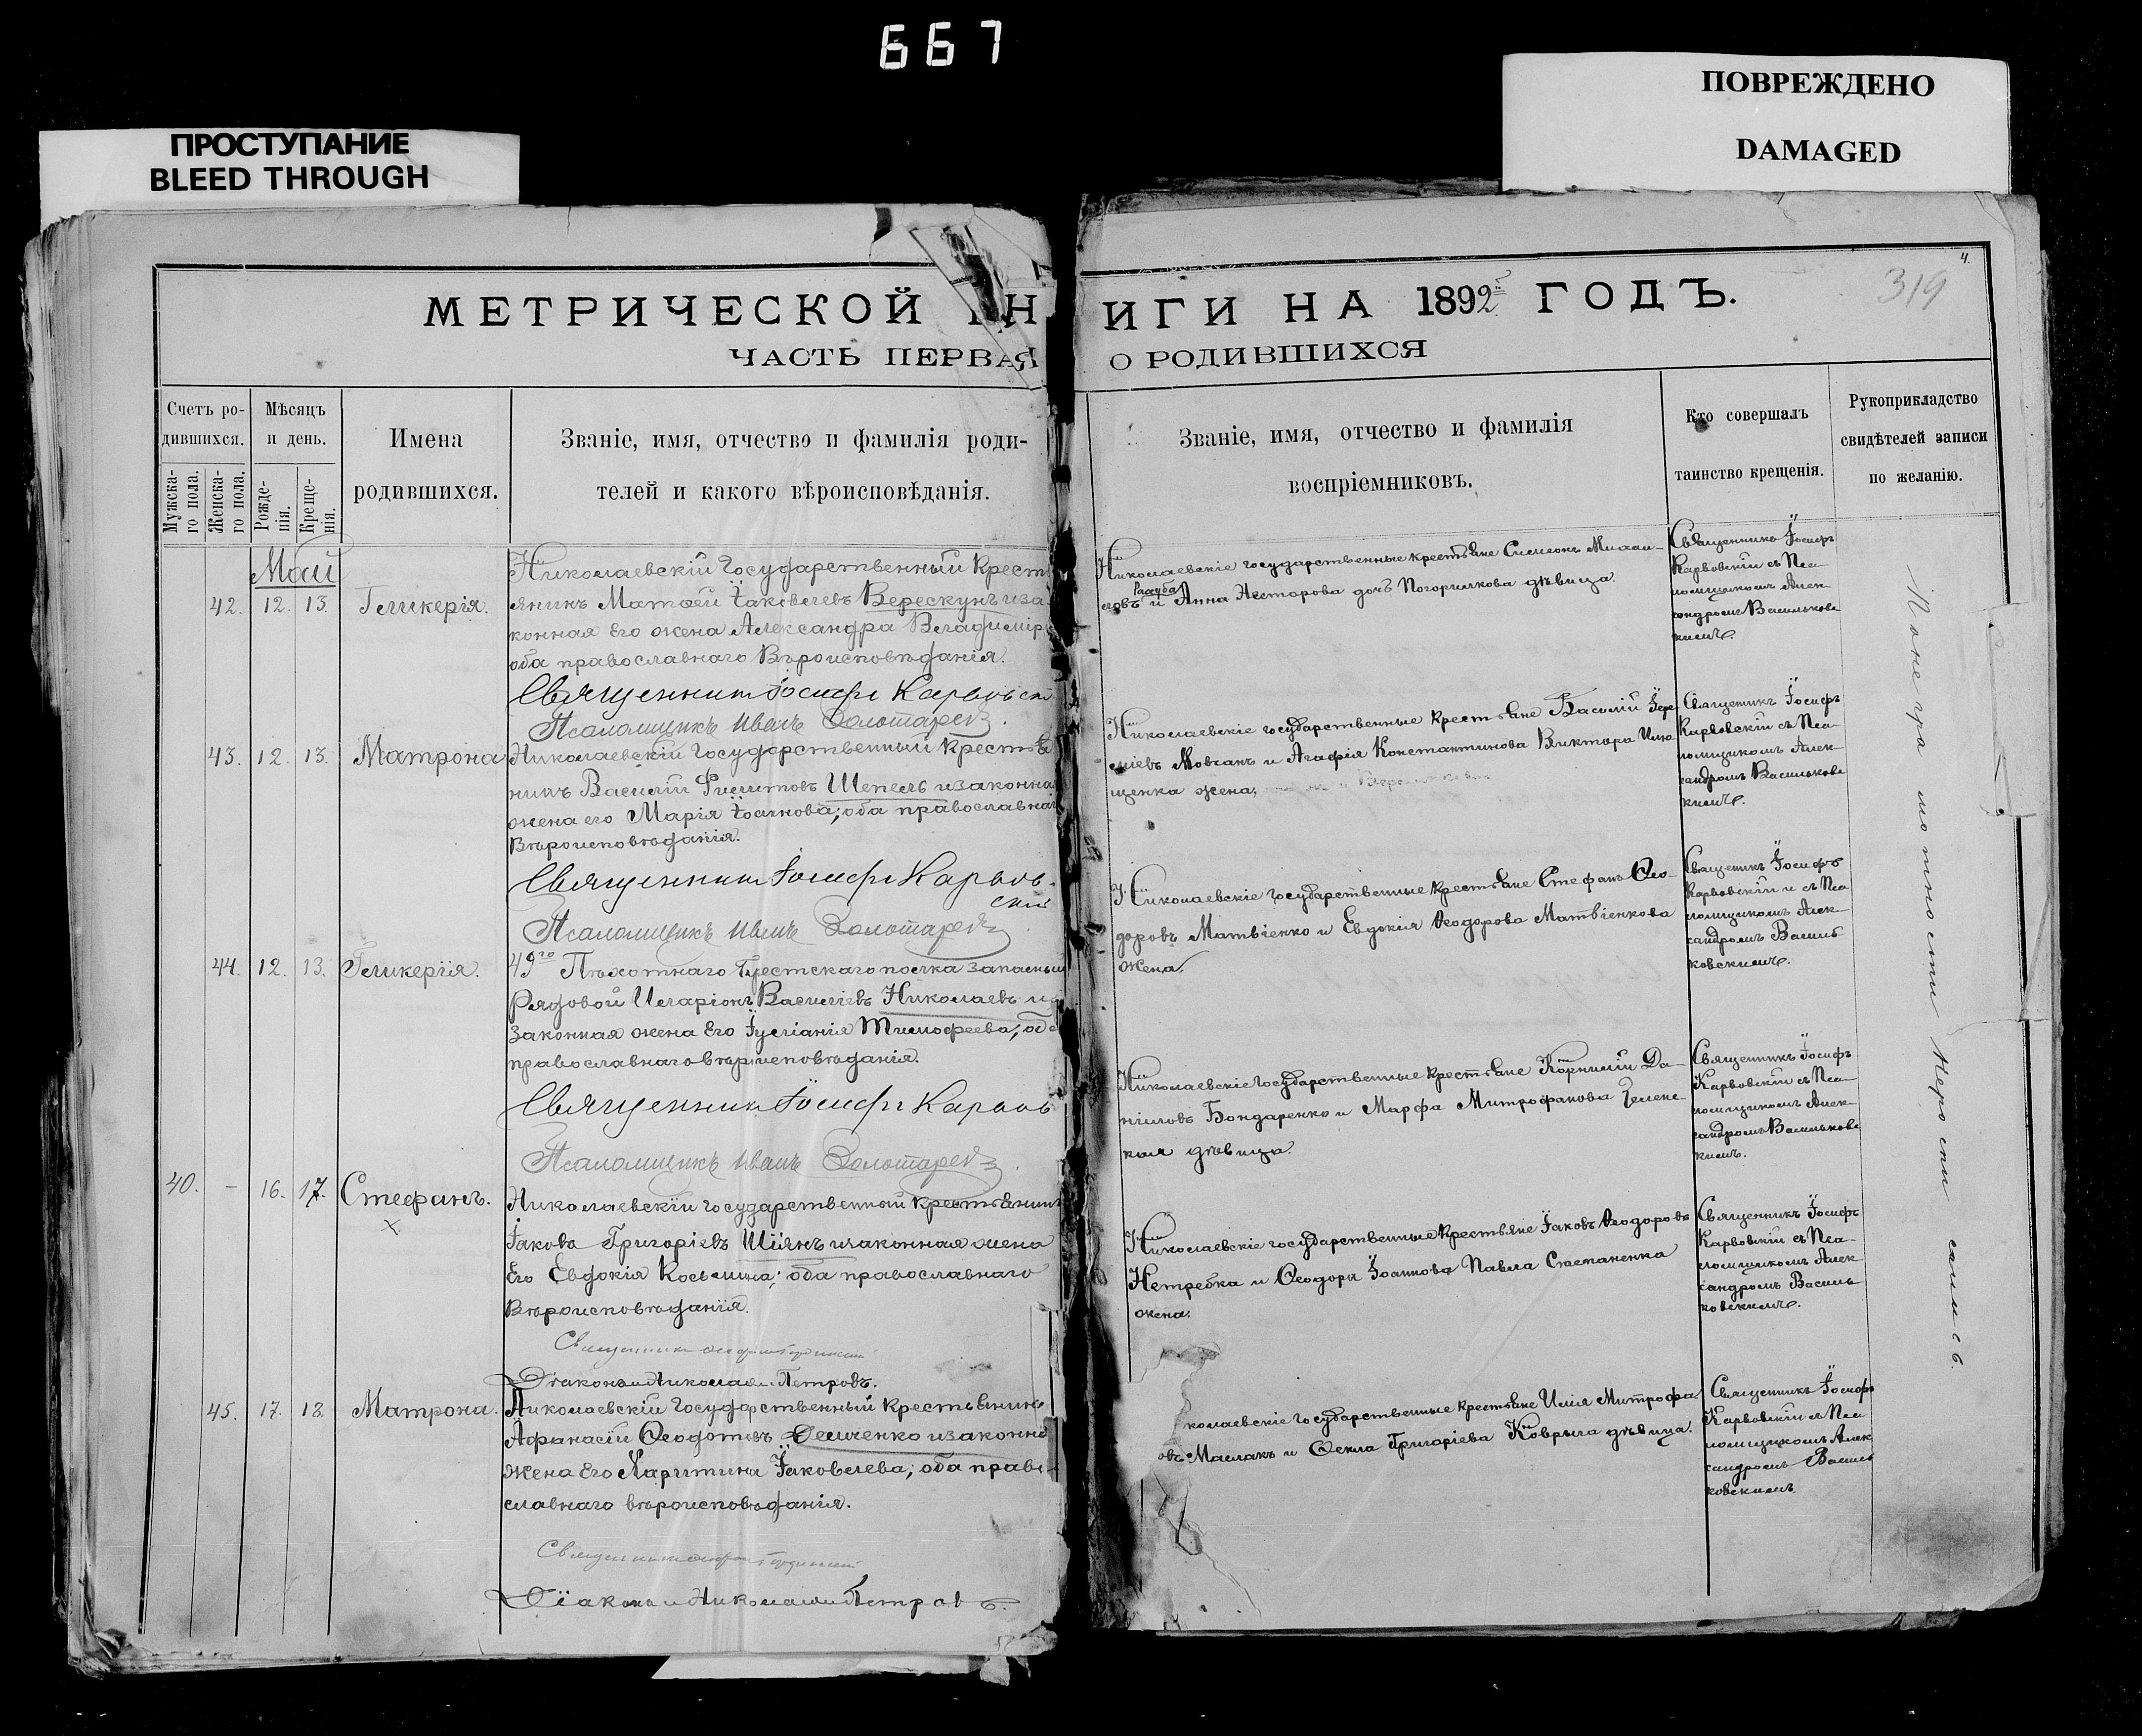 667
ПРОСТУПАНИЕ
BLEED THROUGH
ПОВРЕЖДЕНО
DAMAGED
4.
319
МЕТРИЧЕСКОЙ КН
ИГИ НА 1892 ГОДЪ.
ЧАСТЬ ПЕРВАЯ
О РОДИВШИХСЯ
Счетъ ро-
дившихся.
Мужска-
го пола.
Женска-
го пола.
Мѣсяцъ
и день.
Рожде-
нія.
Креще-
нія.
Имена
родившихся.
Званіе, имя, отчество и фамилія роди-
телей и какого вѣроисповѣданія.
Званіе, имя, отчество и фамилія
воспріемниковъ.
Кто совершалъ
таинство крещенія.
Рукоприкладство
свидѣтелей записи
по желанію.
Май
42. 12. 13. Гликерія.
Николаевскій Государственный Крест
янинъ Матѳей Іаковлевъ Верескунъ иза
конная Его жена Александра Владимір
оба православнаго Вѣроисповѣданія.
Священникъ Іосифъ Карвовскі
Псаломщикъ Иванъ Золотаревъ.
Николаевскіе государственные крестьяне Симеонъ Михаи-
ловъ и Анна Несторова дочь Погорилкова дѣвица.
Священникъ Іосифъ
Карвовскій съ Пса-
ломщикомъ Алек-
сандромъ Васильков-
скимъ.
43. 12. 13. Матрона
Николаевскій Государственный Крестья
нинъ Василій Филиповъ Шепель изаконна
жена его Марія Іоаннова; оба православна
Вѣроисповѣданія.
Священникъ Іосифъ Карвов-
скій
Псаломщикъ Иванъ Золотаревъ.
Николаевскіе государственные крестьяне Василій
Мовчанъ и Агафія Константинова Виктора
щенка жена,
Священникъ Іосифъ
Карвовскій съ Пса-
ломщикомъ Алек-
сандромъ Васильков-
скимъ.
44. 12. 13. Гликерія.
49го Пѣхотнаго Брестскаго полка запасный
Рядовой Иларіонъ Василіевъ Николаевъ и
Законная жена Его Іуліанія Тимофеева; оба
православнаго вѣроисповѣданія.
Священникъ Іосифъ Карвов
Псаломщикъ Иванъ Золотаревъ.
Николаевскіе государственные крестьяне Стефанъ Ѳео-
доровъ Матвіенко и Евдокія Ѳеодорова Матвіенкова
жена.
Священникъ Іосифъ
Карвовскій и съ Пса
ломщикомъ Алек-
сандромъ Василь
ковскимъ.
40. - 16. 17. Стефанъ.
х
Николаевскій государственный крестьянинъ
Іаковъ Григоріевъ Шіянъ изаконная жена
Его Евдокія Косьмина; оба православнаго
Вѣроисповѣданія.
Діаконъ Николай Петровъ.
Николаевскіе Государственные крестьяне Корнилій Да-
ніиловъ Бондаренко и Марфа Митрофанова Зелен-
кая дѣвица.
Священникъ Іосифъ
Карвовскій съ Пса-
ломщикомъ Алек-
сандромъ Васильков-
скимъ.
Николаевскіе государственные крестьяне Іаковъ Ѳеодоровъ
Нетребка и Ѳеодора Іоаннова Павла Степаненка
жена.
Священникъ Іосифъ
Карвовскій съ Пса-
ломщикомъ Алек
сандромъ Василь
ковскимъ.
45. 17. 18. Матрона.
Николаевскій Государственный крестьянинъ
Афанасій Ѳеодотовъ изаконна
жена Его Харитина Іаковлева; оба право-
славнаго вѣроисповѣданія.
Діаконъ Николай Петровъ.
колаевскіе государственные крестьяне Илія Митрофа
овъ Маслакъ и Ѳекла Григоріева Коврыга дѣвица.
Священникъ Іосифъ
Карвовскій съ Пса
ломщикомъ Алек
сандромъ Василь
ковскимъ